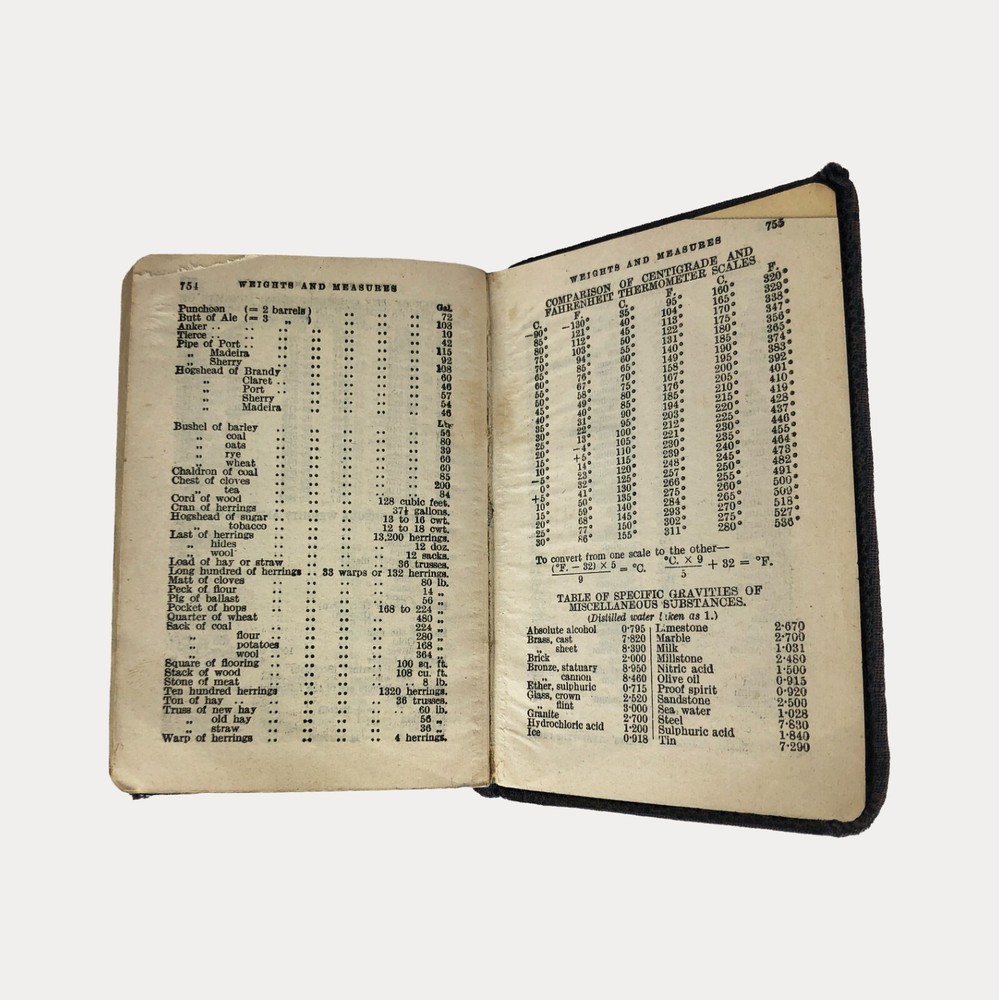 754 WEIGHTS AND MEASURES
Gal.
Puncheon (= 2 barrels) .. .. .. .. 72
Butt of Ale (= 3 ,, ) .. .. .. .. 108
Anker .. .. .. .. .. .. 10
Tierce .. .. .. .. .. .. 42
Pipe of Port .. .. .. .. .. 115
,, Madeira .. .. .. .. .. 92
,, Sherry .. .. .. .. .. 108
Hogshead of Brandy .. .. .. .. 60
,, Claret .. .. .. .. .. 46
,, Port .. .. .. .. .. 57
,, Sherry .. .. .. .. 54
,, Madeira .. .. .. .. 46
Lb.
Bushel of barley .. .. .. .. .. 56
,, coal .. .. .. .. .. 80
,, oats .. .. .. .. .. 39
,, rye .. .. .. .. .. 60
,, wheat .. .. .. .. .. 60
Chaldron of coal .. .. .. .. .. 85
Chest of cloves .. .. .. .. .. 200
,, tea .. .. .. .. .. 84
Cord of wood .. .. .. .. 128 cubic feet.
Cran of herrings .. .. .. .. 37½ gallons.
Hogshead of sugar .. .. .. .. 13 to 16 cwt.
,, tobacco .. .. .. 12 to 18 cwt.
Last of herrings .. .. .. .. 13,200 herrings.
,, hides .. .. .. .. 12 doz.
,, wool .. .. .. .. 12 sacks.
Load of hay or straw .. .. .. .. 36 trusses.
Long hundred of herrings .. 33 warps or 132 herrings.
Matt of cloves .. .. .. .. 80 lb.
Peck of flour .. .. .. .. 14 ,,
Pig of ballast .. .. .. .. 56 ,,
Pocket of hops .. .. .. 168 to 224 ,,
Quarter of wheat .. .. .. .. 480 ,,
Sack of coal .. .. .. .. 224 ,,
,, flour .. .. .. .. 280 ,,
,, potatoes .. .. .. .. 168 ,,
,, wool .. .. .. .. 364 ,,
Square of flooring .. .. .. .. 100 sq. ft.
Stack of wood .. .. .. .. 108 cu. ft.
Stone of meat .. .. .. .. 8 lb.
Ten hundred herrings .. .. .. 1320 herrings.
Ton of hay .. .. .. .. 36 trusses.
Truss of new hay .. .. .. .. 60 lb.
,, old hay .. .. .. .. 56 ,,
,, straw .. .. .. .. 36 ,,
Warp of herrings .. .. .. .. 4 herrings.
WEIGHTS AND MEASURES 755
COMPARISON OF CENTIGRADE AND
FAHRENHEIT THERMOMETER SCALES
C. F. C. F. C. F.
−90° −130° 35° 95° 160° 320°
85° 121° 40° 104° 165° 329°
80° 112° 45° 113° 170° 338°
75° 103° 50° 122° 175° 347°
70° 94° 55° 131° 180° 356°
65° 85° 60° 140° 185° 365°
60° 76° 65° 149° 190° 374°
55° 67° 70° 158° 195° 383°
50° 58° 75° 167° 200° 392°
45° 49° 80° 176° 205° 401°
40° 40° 85° 185° 210° 410°
35° 31° 90° 194° 215° 419°
30° 22° 95° 203° 220° 428°
25° 13° 100° 212° 225° 437°
20° −4° 105° 221° 230° 446°
15° +5° 110° 230° 235° 455°
10° 14° 115° 239° 240° 464°
−5° 23° 120° 248° 245° 473°
0° 32° 125° 257° 250° 482°
+5° 41° 130° 266° 255° 491°
10° 50° 135° 275° 260° 500°
15° 59° 140° 284° 265° 509°
20° 68° 145° 293° 270° 518°
25° 77° 150° 302° 275° 527°
30° 86° 155° 311° 280° 536°
To convert from one scale to the other—
(°F. − 32) × 5 / 9 = °C. °C. × 9 / 5 + 32 = °F.
TABLE OF SPECIFIC GRAVITIES OF
MISCELLANEOUS SUBSTANCES.
(Distilled water taken as 1.)
Absolute alcohol 0·795 Limestone 2·670
Brass, cast 7·820 Marble 2·700
,, sheet 8·390 Milk 1·031
Brick 2·000 Millstone 2·480
Bronze, statuary 8·950 Nitric acid 1·500
,, cannon 8·460 Olive oil 0·915
Ether, sulphuric 0·715 Proof spirit 0·920
Glass, crown 2·520 Sandstone 2·500
,, flint 3·000 Sea water 1·028
Granite 2·700 Steel 7·830
Hydrochloric acid 1·200 Sulphuric acid 1·840
Ice 0·918 Tin 7·290